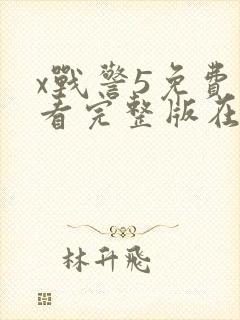 x戰警5免費
看完整版在
林升飛